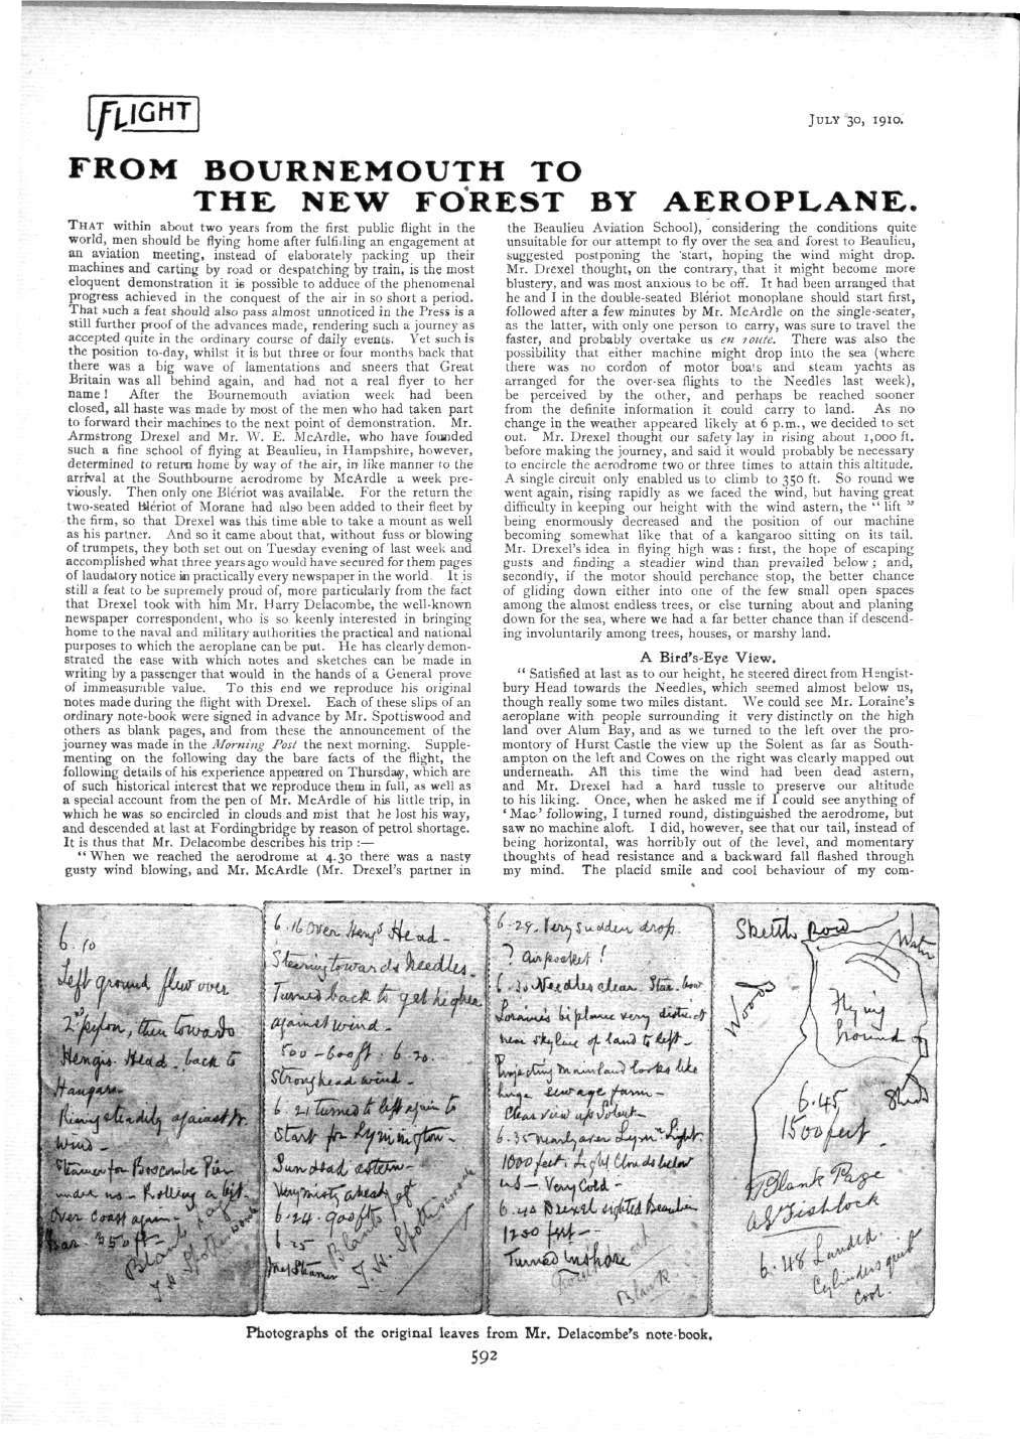 FLIGHT
JULY 30, 1910.
FROM BOURNEMOUTH TO
THE NEW FOREST BY AEROPLANE.
THAT within about two years from the first public flight in the
world, men should be flying home after fulfilling an engagement at
an aviation meeting, instead of elaborately packing up their
machines and carting by road or despatching by train, is the most
eloquent demonstration it is possible to adduce of the phenomenal
progress achieved in the conquest of the air in so short a period.
That such a feat should also pass almost unnoticed in the Press is a
still further proof of the advances made, rendering such a journey as
accepted quite in the ordinary course of daily events. Yet such is
the position to-day, whilst it is but three or four months back that
there was a big wave of lamentations and sneers that Great
Britain was all behind again, and had not a real flyer to her
name! After the Bournemouth aviation week had been
closed, all haste was made by most of the men who had taken part
to forward their machines to the next point of demonstration. Mr.
Armstrong Drexel and Mr. W. E. McArdle, who have founded
such a fine school of flying at Beaulieu, in Hampshire, however,
determined to return home by way of the air, in like manner to the
arrival at the Southbourne aerodrome by McArdle a week pre-
viously. Then only one Blériot was available. For the return the
two-seated Blériot of Morane had also been added to their fleet by
the firm, so that Drexel was this time able to take a mount as well
as his partner. And so it came about that, without fuss or blowing
of trumpets, they both set out on Tuesday evening of last week and
accomplished what three years ago would have secured for them pages
of laudatory notice in practically every newspaper in the world. It is
still a feat to be supremely proud of, more particularly from the fact
that Drexel took with him Mr. Harry Delacombe, the well-known
newspaper correspondent, who is so keenly interested in bringing
home to the naval and military authorities the practical and national
purposes to which the aeroplane can be put. He has clearly demon-
strated the ease with which notes and sketches can be made in
writing by a passenger that would in the hands of a General prove
of immeasurable value. To this end we reproduce his original
notes made during the flight with Drexel. Each of these slips of an
ordinary note-book were signed in advance by Mr. Spottiswood and
others as blank pages, and from these the announcement of the
journey was made in the Morning Post the next morning. Supple-
menting on the following day the bare facts of the flight, the
following details of his experience appeared on Thursday, which are
of such historical interest that we reproduce them in full, as well as
a special account from the pen of Mr. McArdle of his little trip, in
which he was so encircled in clouds and mist that he lost his way,
and descended at last at Fordingbridge by reason of petrol shortage.
It is thus that Mr. Delacombe describes his trip :—
"When we reached the aerodrome at 4.30 there was a nasty
gusty wind blowing, and Mr. McArdle (Mr. Drexel's partner in
the Beaulieu Aviation School), considering the conditions quite
unsuitable for our attempt to fly over the sea and forest to Beaulieu,
suggested postponing the start, hoping the wind might drop.
Mr. Drexel thought, on the contrary, that it might become more
blustery, and was most anxious to be off. It had been arranged that
he and I in the double-seated Blériot monoplane should start first,
followed after a few minutes by Mr. McArdle on the single-seater,
as the latter, with only one person to carry, was sure to travel the
faster, and probably overtake us en route. There was also the
possibility that either machine might drop into the sea (where
there was no cordon of motor boats and steam yachts as
arranged for the over-sea flights to the Needles last week),
be perceived by the other, and perhaps be reached sooner
from the definite information it could carry to land. As no
change in the weather appeared likely at 6 p.m., we decided to set
out. Mr. Drexel thought our safety lay in rising about 1,000 ft.
before making the journey, and said it would probably be necessary
to encircle the aerodrome two or three times to attain this altitude.
A single circuit only enabled us to climb to 350 ft. So round we
went again, rising rapidly as we faced the wind, but having great
difficulty in keeping our height with the wind astern, the "lift"
being enormously decreased and the position of our machine
becoming somewhat like that of a kangaroo sitting on its tail.
Mr. Drexel's idea in flying high was : first, the hope of escaping
gusts and finding a steadier wind than prevailed below ; and,
secondly, if the motor should perchance stop, the better chance
of gliding down either into one of the few small open spaces
among the almost endless trees, or else turning about and planing
down for the sea, where we had a far better chance than if descend-
ing involuntarily among trees, houses, or marshy land.
A Bird's-Eye View.
"Satisfied at last as to our height, he steered direct from Hengist-
bury Head towards the Needles, which seemed almost below us,
though really some two miles distant. We could see Mr. Loraine's
aeroplane with people surrounding it very distinctly on the high
land over Alum Bay, and as we turned to the left over the pro-
montory of Hurst Castle the view up the Solent as far as South-
ampton on the left and Cowes on the right was clearly mapped out
underneath. All this time the wind had been dead astern,
and Mr. Drexel had a hard tussle to preserve our altitude
to his liking. Once, when he asked me if I could see anything of
'Mac' following, I turned round, distinguished the aerodrome, but
saw no machine aloft. I did, however, see that our tail, instead of
being horizontal, was horribly out of the level, and momentary
thoughts of head resistance and a backward fall flashed through
my mind. The placid smile and cool behaviour of my com-
6.10
Left ground flew over
2nd pylon, then towards
Hengis. Head. back to
Hangars.
Rising steadily against
wind -
Steamer for Boscombe Pier
under us - Rolling a bit.
Over coast again -
Bar. 350 ft -
Blank Page
J. W. Spottiswoode
6.16 Over Heng's Head -
Steering towards Needles.
Turned back to get higher
against wind -
500 - 600 ft : 6.20.
Strong head wind -
6.21 turned to left again to
start for Lymington -
Sun dead astern -
Very misty ahead
6.24 . 900 ft
6.25
Steamer
Blank
J. W. Spottiswoode
6.29. Very sudden drop.
? Air pocket !
6.30 Needles clear. Star. bow
Loraine's biplane very distinct
near skyline of land to left -
Projecting mainland looks like
huge sewage farm -
Clear view up Solent -
6.35 nearly over Lym'n Light.
1000 feet. Light Clouds below
us - Very Cold -
6.40 Drexel sighted Beaulieu
1200 feet -
Turned Inshore
Blank
Sketch Row
Water
Woods
Flying
Ground
Sheds
6.45
1500 feet
Blank Page
6.48 Landed.
Cylinders quite
cool.
Photographs of the original leaves from Mr. Delacombe's note-book.
592